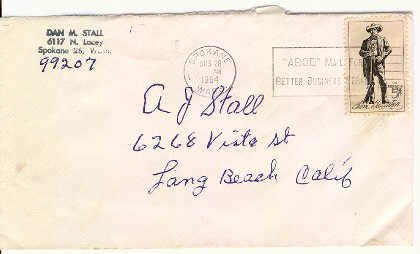 DAN M. STALL
6117 N. Lacey
Spokane 26, Wash.
99207
SPOKANE
AUG 28
PM
1964
WASH
"ABCD" MAIL FOR
BETTER BUSINESS
A J Stall
6268 Vista st
Long Beach Calif